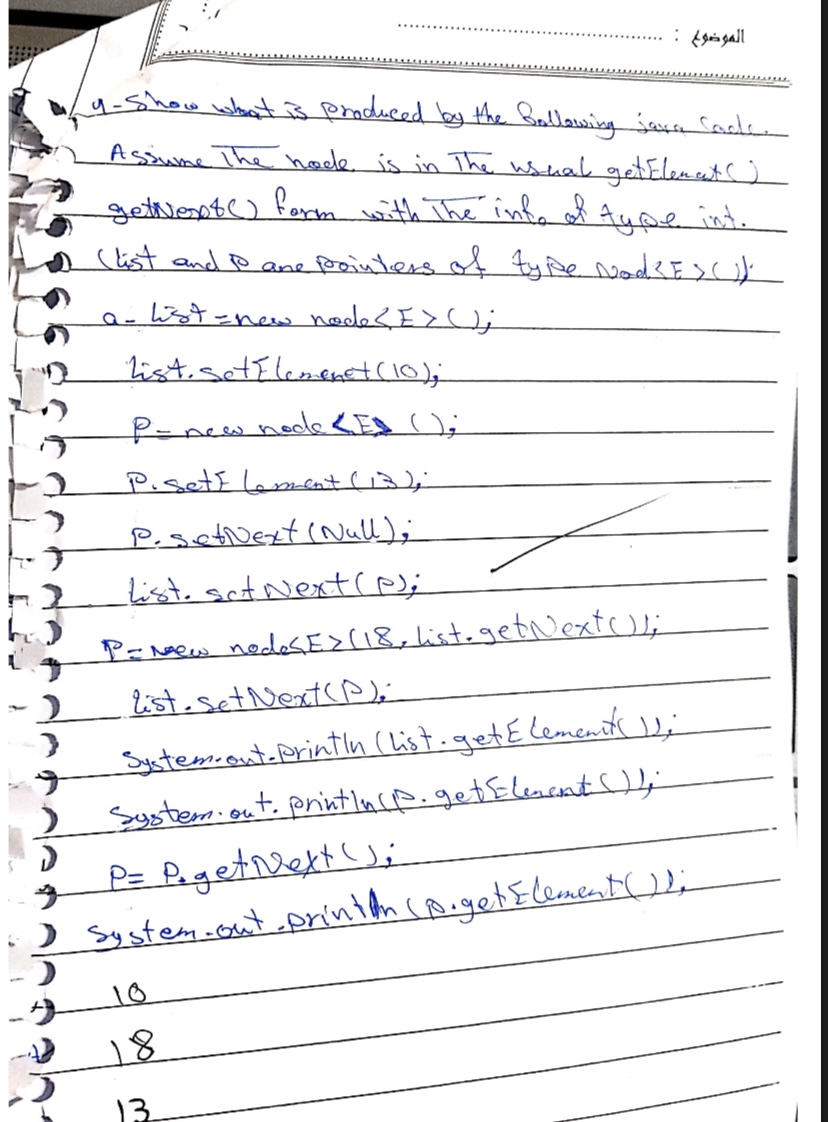 الموضوع : ............................................................
9- Show what is produced by the following java code.
Assume The node is in The usual getElemat()
getNext() form with The info of type int.
(list and P are pointers of type Nod<E>());
a- List = new node<E>();
list.setElemenet(10);
P = new node <E> ();
P.setElement(13);
P.setNext(Null);
List.setNext(P);
P = new node<E>(18, list.getNext());
list.setNext(P);
System.out.println(list.getElement());
System.out.println(p.getElement());
P = P.getNext();
System.out.println(p.getElement());
10
18
13